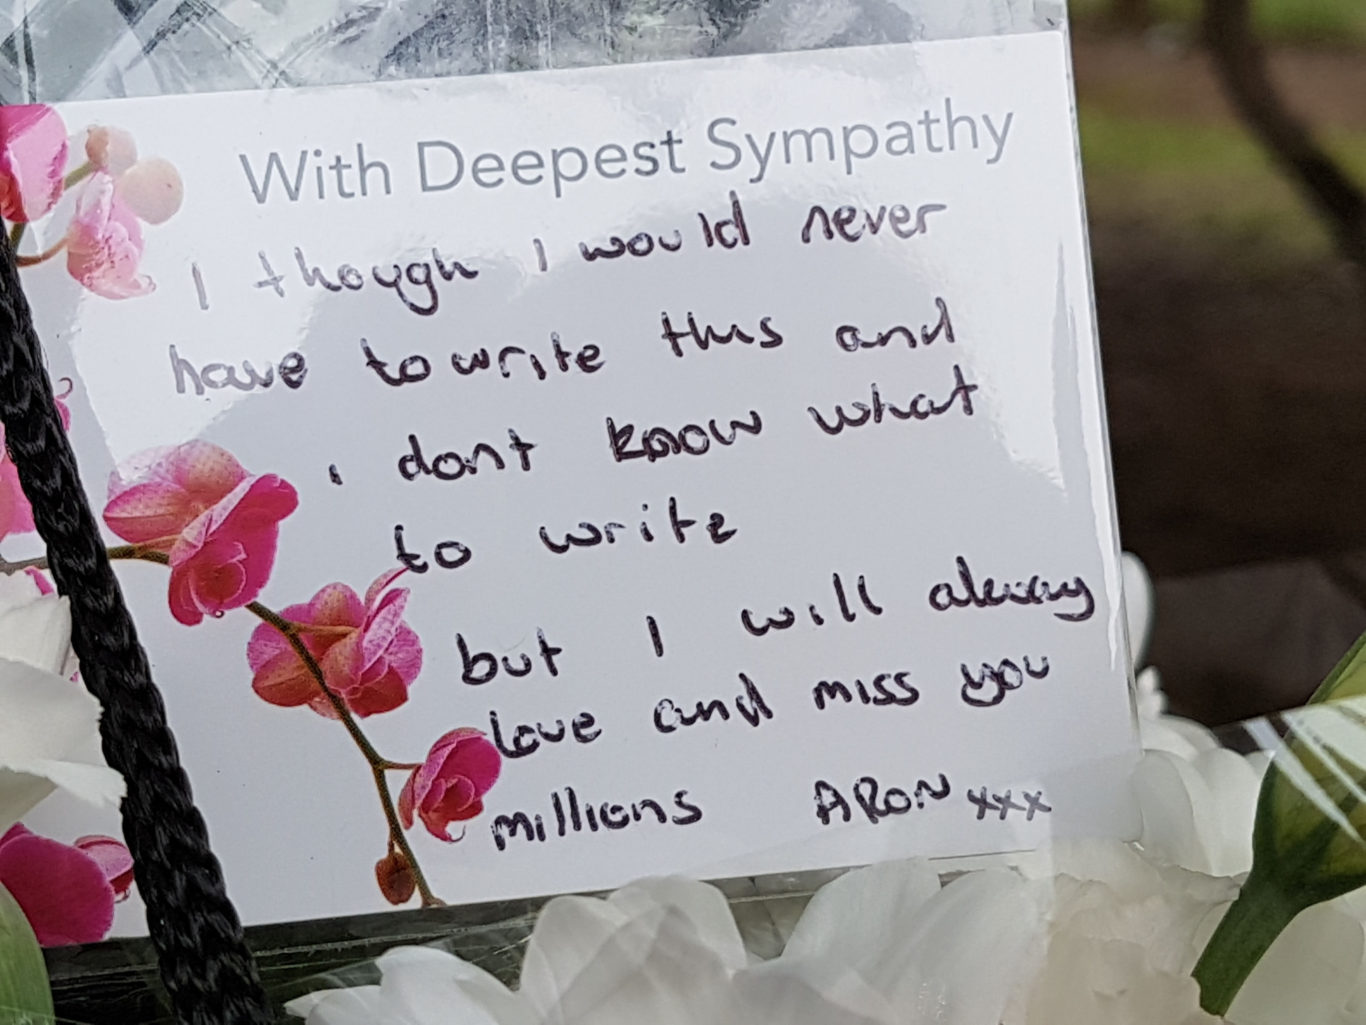 With Deepest Sympathy
I though I would never
have to write this and
i dont know what
to write
but I will alway
love and miss you
millions ARON xxx